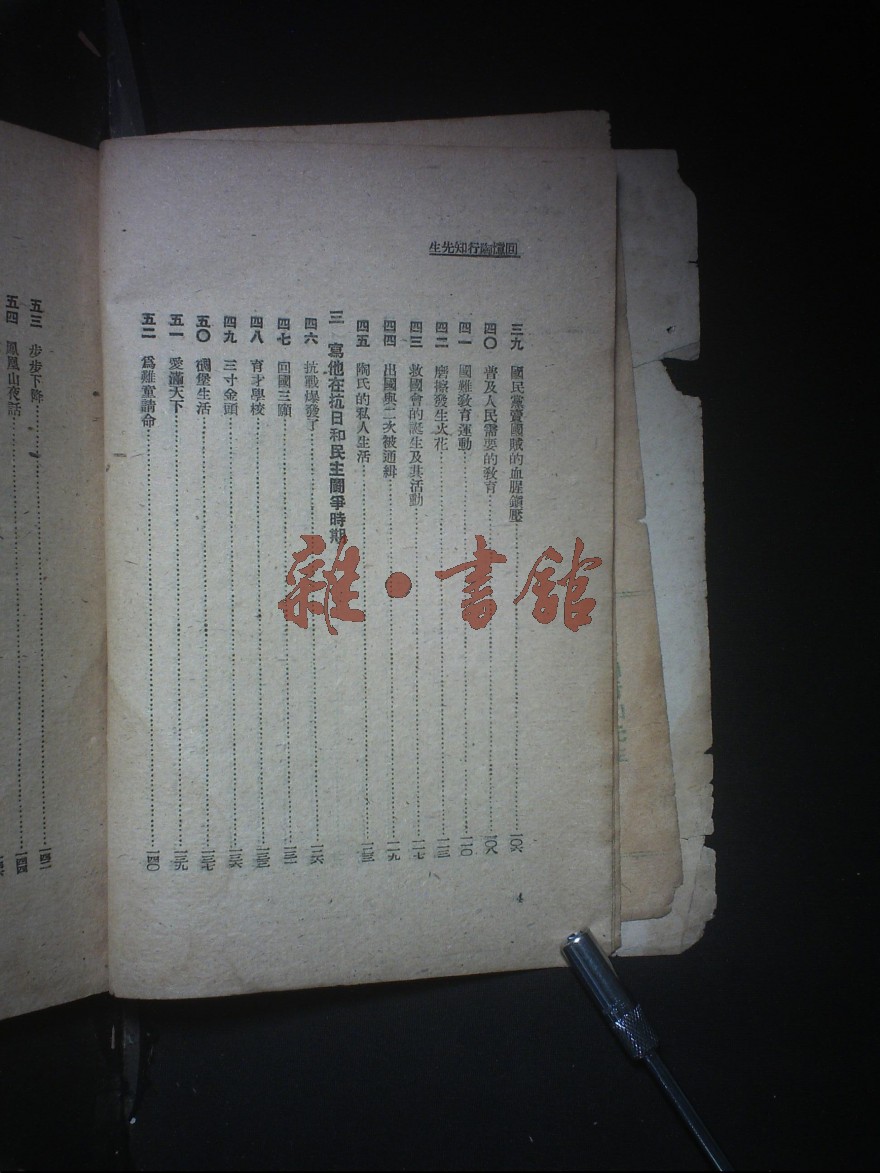 回憶陶行知先生
三九 國民黨賣國賊的血腥鎮壓……一〇六
四〇 普及人民需要的教育……一〇八
四一 國難教育運動……一一〇
四二 磨擦發生火花……一一三
四三 救國會的誕生及其活動……一一七
四四 出國與二次被通緝……一一九
四五 陶氏的私人生活……一二三
三 寫他在抗日和民主鬭爭時期
四六 抗戰爆發了……一二六
四七 回國三願……一三一
四八 育才學校……一三三
四九 三寸金頭……一三六
五〇 碉堡生活……一三七
五一 愛滿天下……一三九
五二 爲難童請命……一四〇
4
五三 步步下降……一四二
五四 鳳凰山夜話……一四四
雜·書館